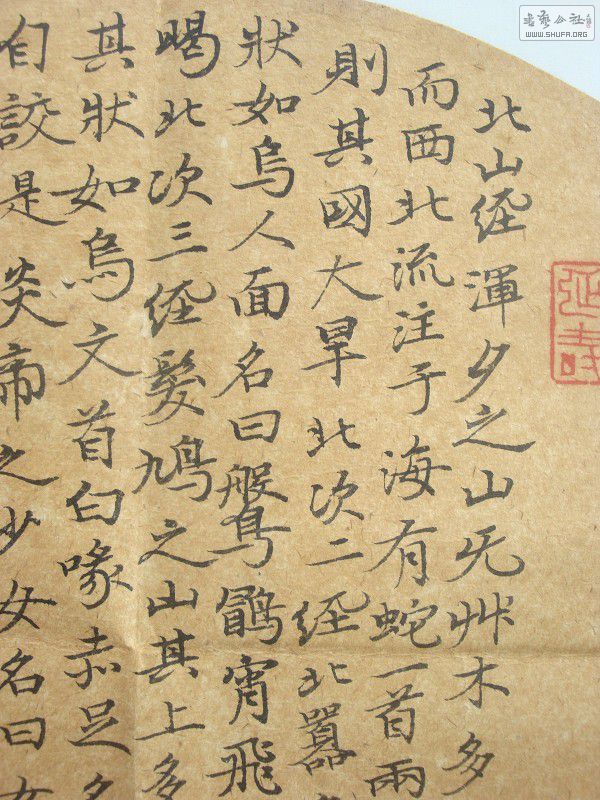 書藝公社
WWW.SHUFA.ORG
北山經渾夕之山无艸木多
而西北流注于海有蛇一首兩
則其國大旱北次二經北嚻
狀如烏人面名曰宵飛
暍北次三經髮鳩之山其上多
其狀如烏文首白喙赤足名
自詨是炎帝之少女名曰女
延壽